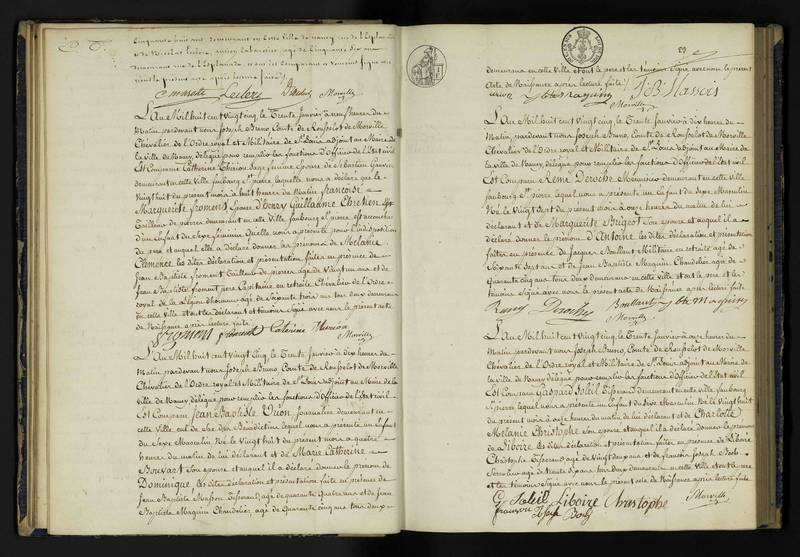 Cinquante huit ans, demeurant en cette Ville de Nancy, rue de l'Esplanade
et Nicolas Leclerc, ancien Cabaretier, agé de Cinquante six ans
demeurant rue de l'Esplanade,
Leclerc Morville
L'An Mil huit cent vingt cinq, le Trente Janvier à neuf heures du
Matin, pardevant nous Joseph Bruno, Comte de Rousselot de Morville
Chevalier de l'Ordre royal et Militaire de St Louis adjoint au Maire de
la Ville de Nancy, délégué pour remplir les fonctions d'Officier de l'Etat civil
Est Comparue Catherine Thirion Sage femme Epouse de Sébastien
demeurant en cette Ville faubourg St pierre laquelle nous a déclaré que le
Vingt huit du présent mois à huit heures du Matin, françoise
Marguerite fromont, Epouse d'Henry Guillaume Chretien
Tailleur de pierres demeurant en cette Ville, faubourg St pierre est accouchée
d'un Enfant du Sexe féminin, Qu'elle nous a présenté pour l'indisposition
du père et auquel elle a déclaré donner les prénoms de Mélanie
Clémence, les dites déclaration et présentation faites en présence de
Jean Baptiste fromont Tailleur de pierres agé de Vingt un ans et de
Jean Baptiste fromont père Capitaine en retraite Chevalier de l'Ordre
royal de la Légion d'honneur agé de Soixante trois ans tous deux demeurant
en cette Ville et ont les déclarant et témoins Signé avec nous le présent acte
de Naissance après lecture faite.
fromont fromont Catherine Thirion
Morville
L'An Mil huit cent Vingt Cinq, le Trente Janvier à dix heures du
Matin, pardevant nous Joseph Bruno, Comte de Rousselot de Morville
Chevalier de l'Ordre royal et Militaire de St Louis adjoint au Maire de la
Ville de Nancy délégué pour remplir les fonctions d'Officier de l'Etat civil
Est Comparu Jean Baptiste Dion, Journalier demeurant en
cette Ville, cul de Sac des Bénédictins lequel nous a présenté un Enfant
du Sexe Masculin Né le Vingt huit du présent mois à quatre
heures du matin de lui déclarant et de Marie Catherine
Bouvart Son épouse et auquel il a déclaré donner le prénom de
Dominique, les dites déclaration et présentation faites en présence de
Jean Baptiste Masson Tisserand, agé de quarante Quatre ans et de Jean
Baptiste Maquin Chandelier, agé de Quarante cinq ans tous deux
29
demeurans en cette Ville et ont le père et les témoins Signé avec nous le présent
Acte de Naissance après lecture faite.
Morville
L'An Mil huit cent Vingt Cinq, le Trente Janvier à dix heures du
Matin, pardevant nous Joseph Bruno, Comte de Rousselot de Morville
Chevalier de l'Ordre royal et Militaire de St Louis adjoint au Maire de
la Ville de Nancy, délégué pour remplir les fonctions d'Officier de l'Etat civil
Est Comparu René Deroche Menuisier demeurant en cette Ville
faubourg St pierre lequel nous a présenté un Enfant du Sexe Masculin
Né le Vingt Sept du présent mois à onze heures du matin de lui
déclarant et de Marguerite Brigeot Son épouse et auquel il a
déclaré donner le prénom d'Antoine, les dites déclaration et présentation
faites en présence de Jacques Boullant Militaire en retraite agé de
Soixante Sept ans et de Jean Baptiste Maquin, Chandelier, agé de
Quarante cinq ans, tous deux demeurant en cette Ville et ont le père et les
témoins Signé avec nous le présent acte de Naissance après lecture faite
Deroche Boullant
Morville
L'An Mil huit cent Vingt Cinq, le Trente Janvier à onze heures du
Matin, pardevant nous Joseph Bruno, Comte de Rousselot de Morville
Chevalier de l'Ordre royal et Militaire de St Louis adjoint au Maire de
la Ville de Nancy, délégué pour remplir les fonctions d'Officier de l'Etat civil
Est Comparu Gaspard Soleil Tisserand demeurant en cette ville, faubourg
St pierre lequel nous a présenté un Enfant du Sexe Masculin Né le Vingt huit
du présent mois à onze heures du matin, de lui déclarant et de Charlotte
Mélanie Christophe Son épouse et auquel il a déclaré donner le prénom
de Liboire, les dites déclaration et présentation faites en présence de Liboire
Christophe Tisserand agé de Vingt deux ans et de françois Joseph
Serrurier agé de trente six ans tous deux demeurans en cette Ville et ont le père
et les témoins Signé avec nous le présent acte de Naissance après lecture faite
G Soleil Liboire Christophe
françois Joseph Morville